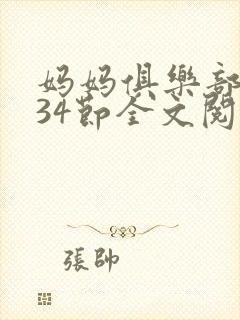 妈妈俱樂部
34節全文閱
張帥